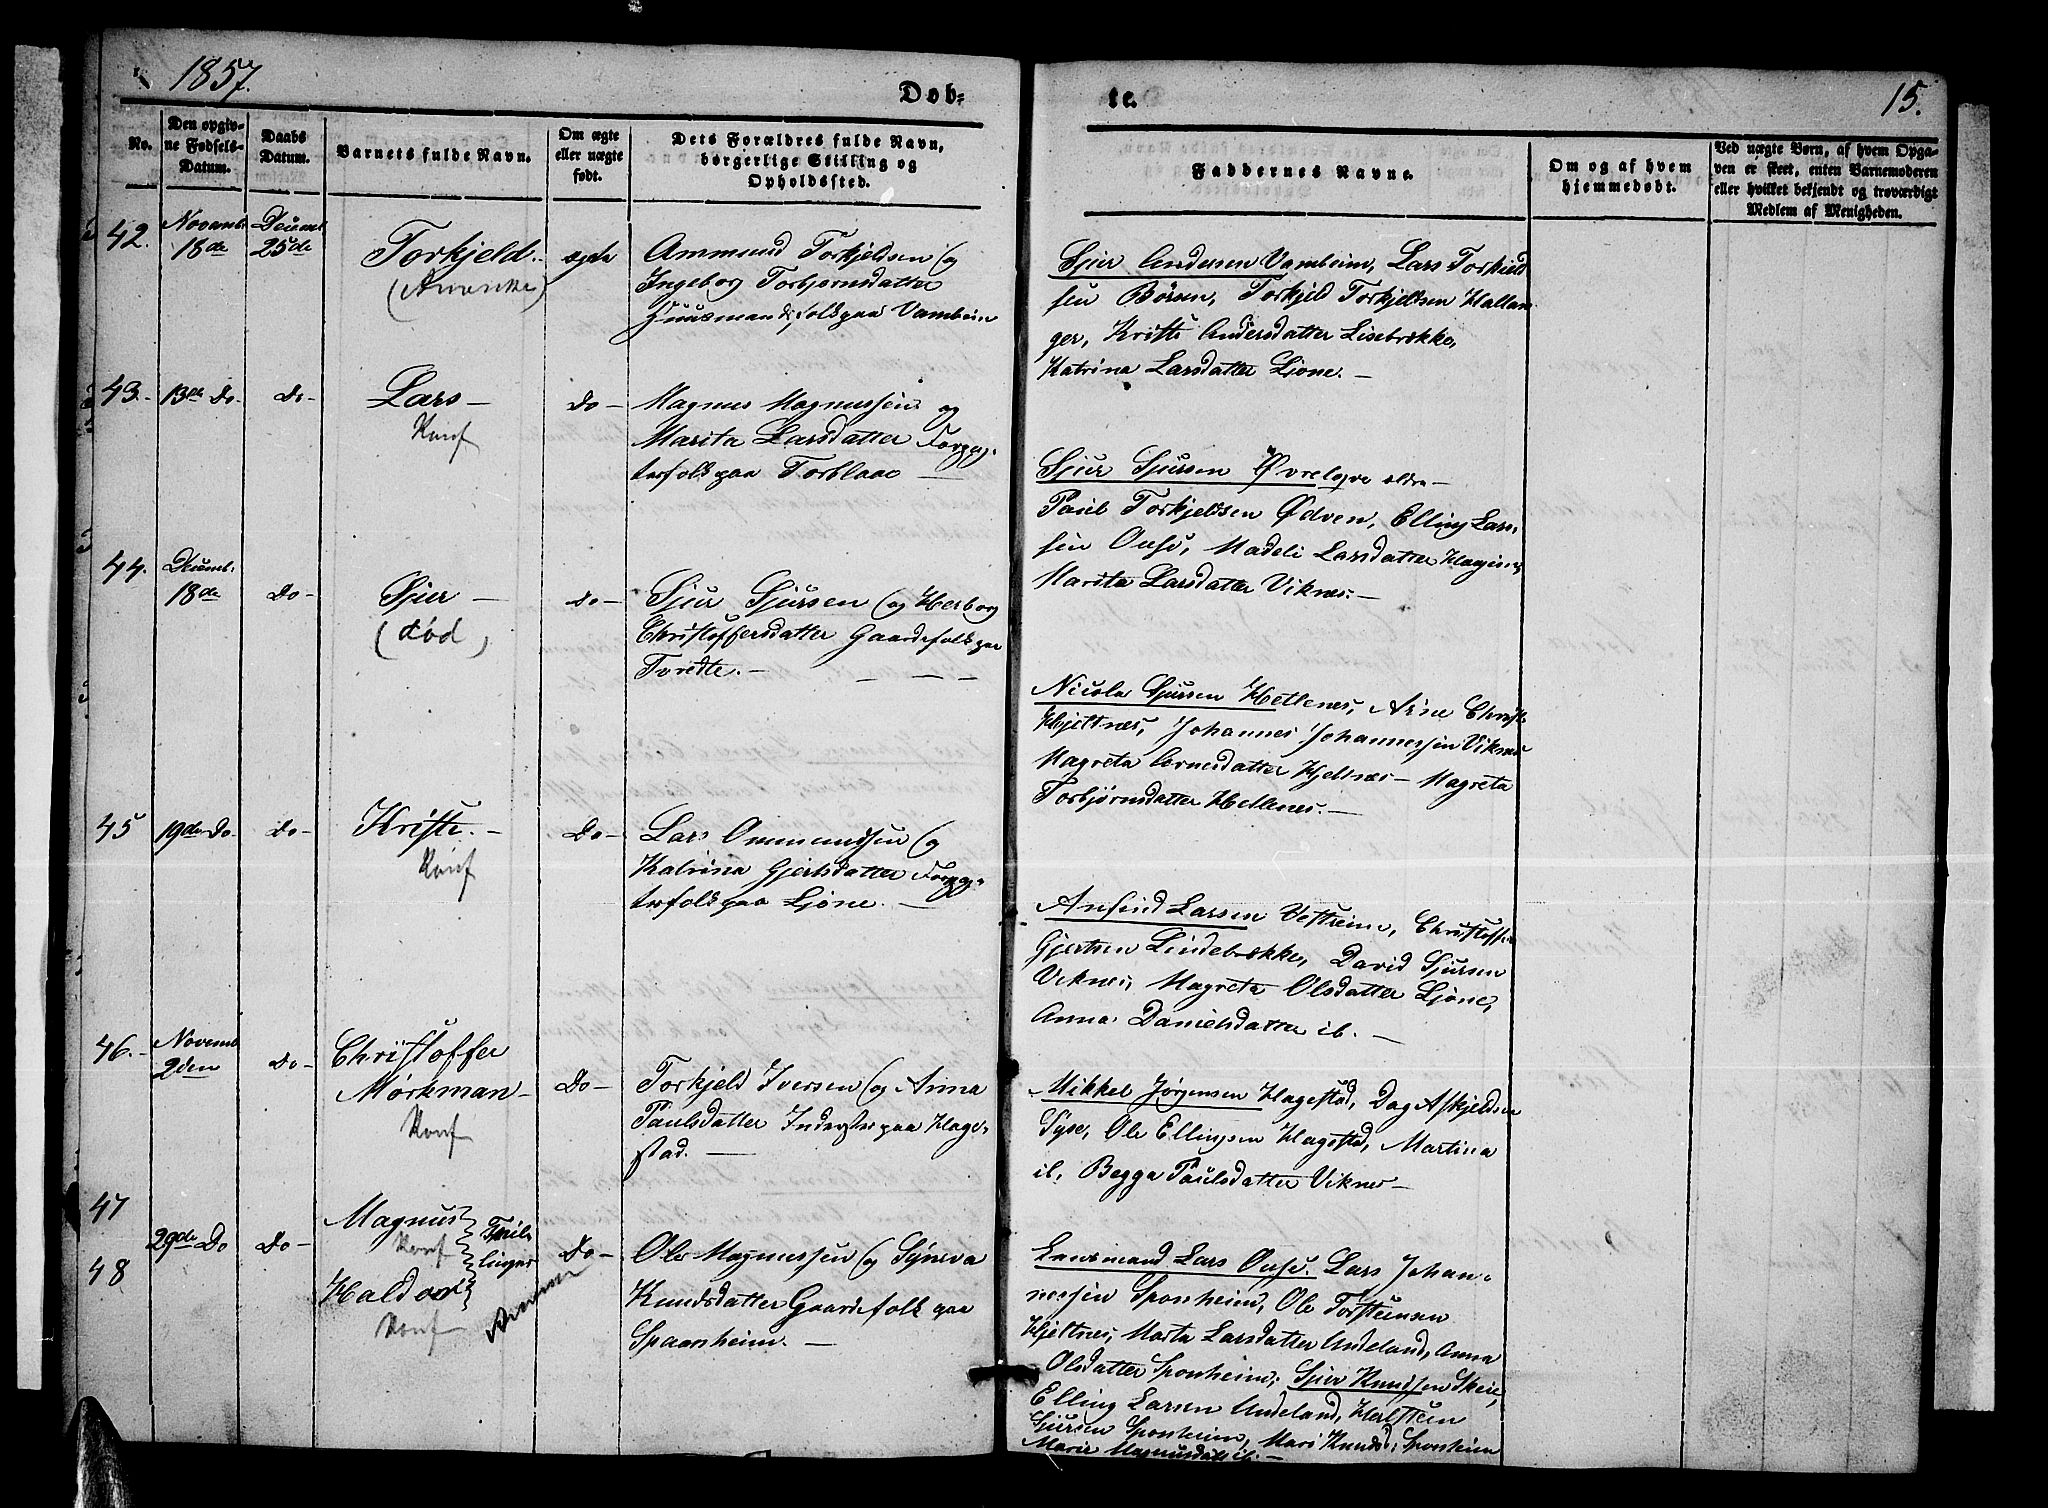 1857.
Dob=
te.
15.
No.
Den opgiv-
ne Fødsels-
Datum.
Daabs
Datum.
Barnets fulde Navn.
Om ægte
eller uægte
født.
Dets Forældres fulde Navn,
borgerlige Stilling og
Opholdssted.
Faddernes Navne.
Om og af hvem
hjemmedøbt.
Ved uægte Børn, af hvem Opga-
ven er skeet, enten Barnemoderen
eller hvilket bekjendt og troværdigt
Medlem af Menigheden.
42.
Novemb.
18de
25de
Torkjeld.
ægte
Ammund Torkjeldsen og
Ingeborg Torbjørnsdatter
Huusmandsfolk paa Vambeim
Sjur Andersen Vambeim, Lars Torkjeld
sen Børsen, Torkjeld Torkjeldsen Hallan
ger, Kristi Andersdatter Lisebrekke,
Katrina Larsdatter Ljone. —
43. —
13de Do —
Do —
Lars —
Konf
Do —
Magnus Magnussen og
Marita Larsdatter Forpag-
terfolk paa Torblaae —
Sjur Sjursen Øvrelope ældre —
Paul Torkjeldsen Ødven, Elling Lars
sen Ouse, Madeli Larsdatter
Marita Larsdatter Viknes. —
44.
Decemb.
18de
Do —
Sjur —
(død)
Do —
Sjur Sjursen og Herborg
Christoffersdatter Gaardsfolk paa
Tveite. —
Nicola Sjursen Hetlenes, Arne Christ
Hjeltnes, Johannes Johannessen Viknes
Magreta Arnesdatter Hjeltnes — Magreta
Torbjørnsdatter Hetlenes. —
45
19de Do
Do —
Kristi. —
Konf
Do —
Lars Ommundsen og
Katrina Gjertsdatter Forpag-
terfolk paa Ljone. —
Anfind Larsen Vestreim, Christoffer
Gjertsen Lindebrekke, David Sjursen
Viknes, Magreta Olsdatter Ljone,
Anna Danielsdatter ib. —
46. —
Novemb
2den
Do —
Christoffer
Mørkman —
Konf
Do —
Torkjeld Iversen og Anna
Paulsdatter Inderster paa Hage-
stad. —
Mikkel Jørgensen Hagestad, Dag Askjeldsen
Syse, Ole Ellingsen Hagestad, Martina
ib, Begga Paulsdatter Viknes —
47
48
29de Do
Do —
Magnus
Konf
Haldor
Konf
Tvil-
linger
Do —
Ole Magnussen og Synva
Knudsdatter Gaardsfolk paa
Spaanheim. —
Lensmand Lars Ouse. Lars Johan-
nessen Sponheim, Ole Torsteinsen
Hjeltnes, Marta Larsdatter Undeland, Anna
Olsdatter Sponheim; Sjur Knudsen Skeie,
Elling Larsen Undeland, Halsten
Sjursen Sponheim, Mari Knudsd: Sponheim
Marie Magnusdatt ib. —